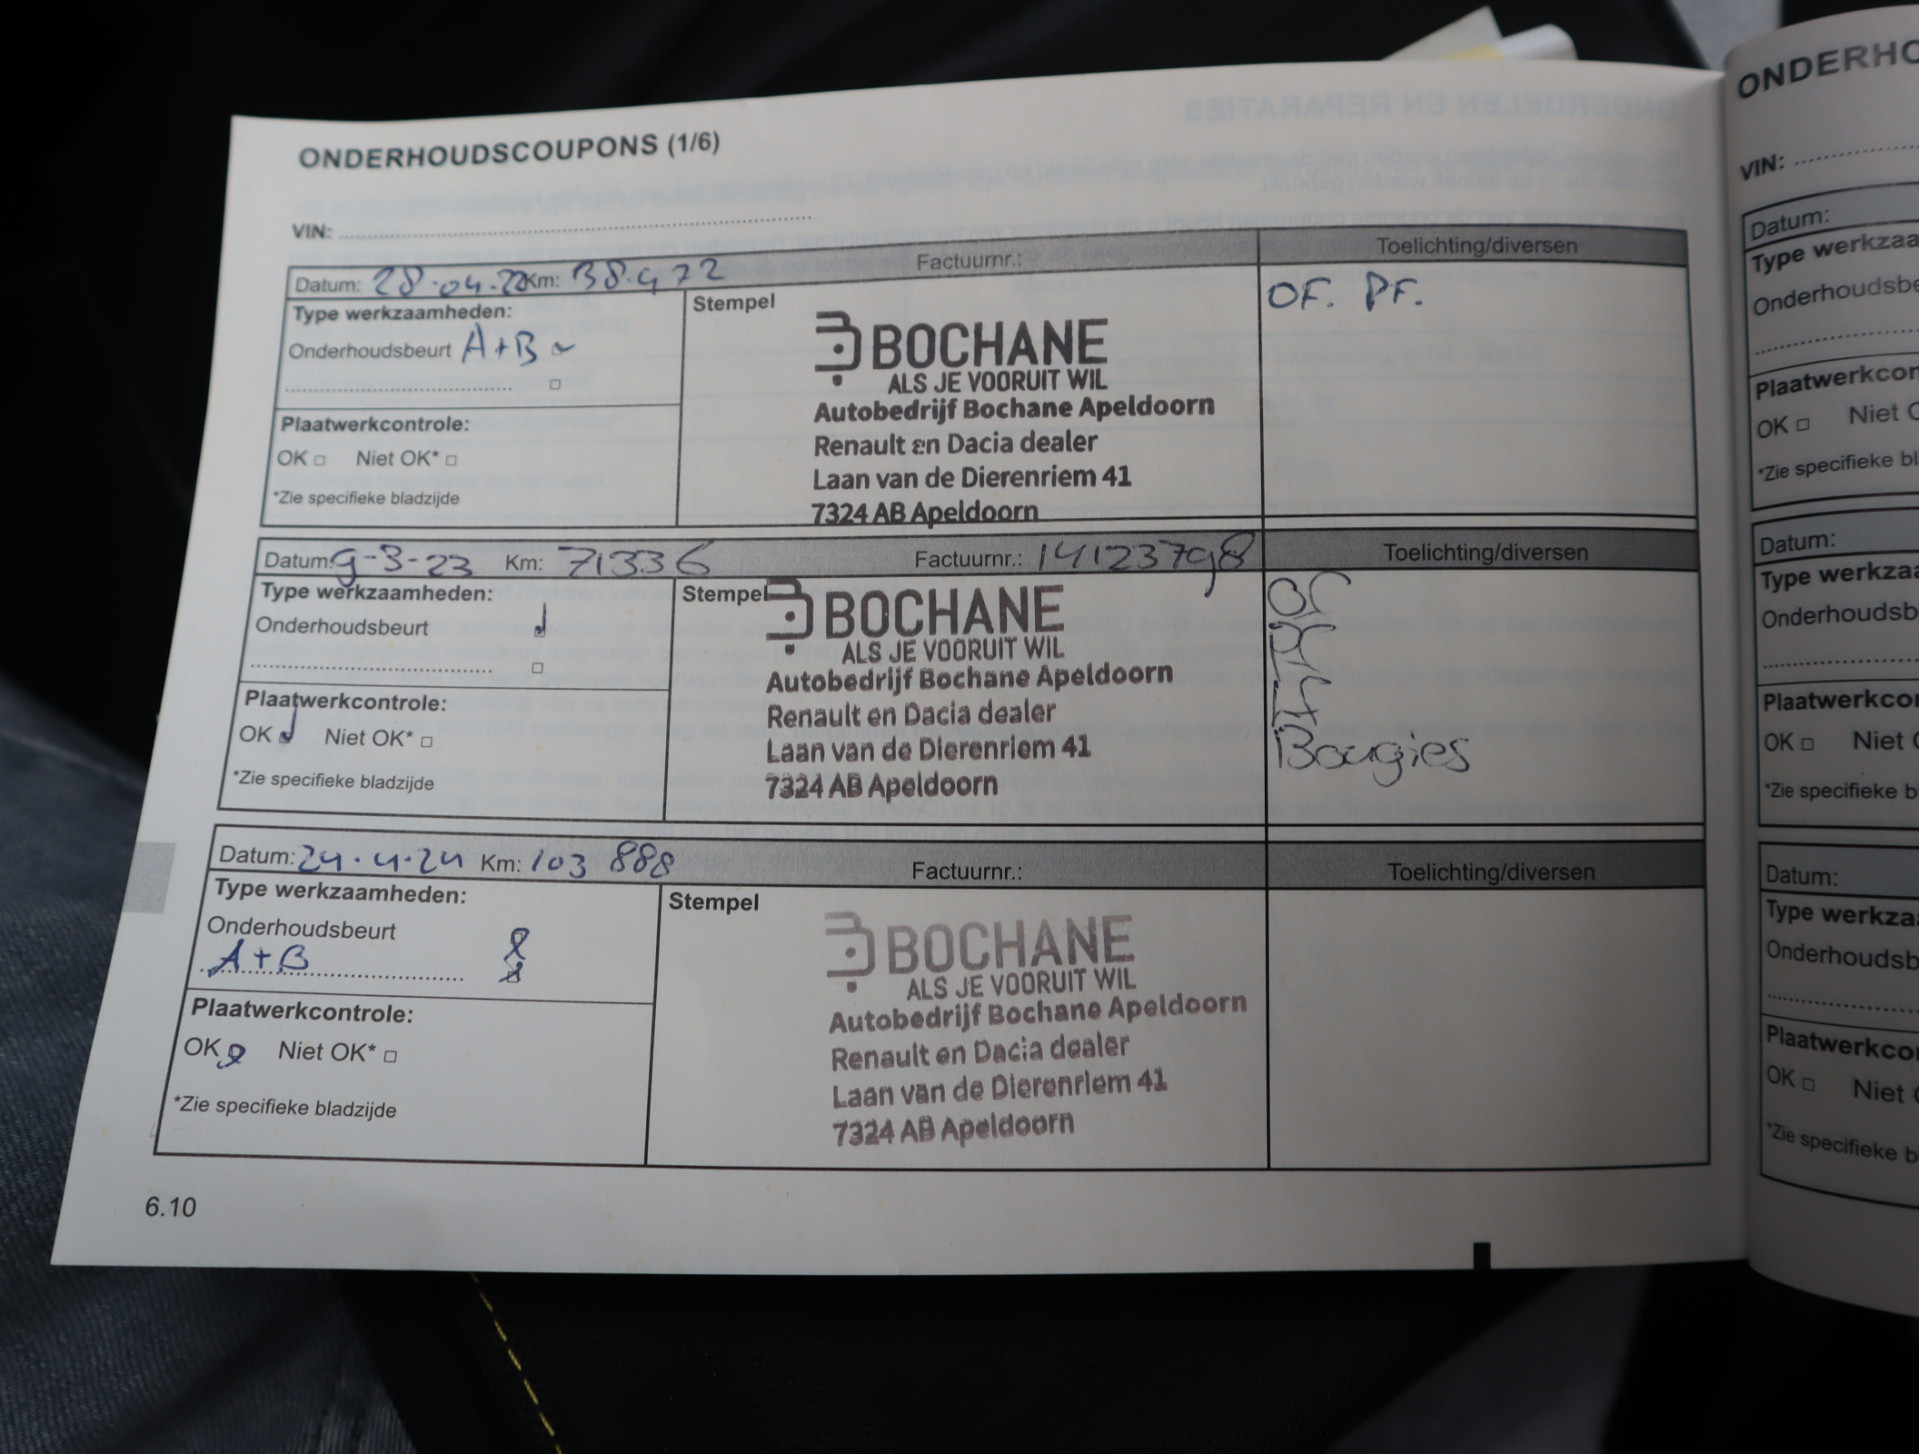 ONDERHOUDSCOUPONS (1/6)
VIN:
Datum: 28-04-22 Km: 38.972 Factuurnr.: Toelichting/diversen
Type werkzaamheden:
Onderhoudsbeurt A+B
Plaatwerkcontrole:
OK Niet OK*
*Zie specifieke bladzijde
Stempel
BOCHANE
ALS JE VOORUIT WIL
Autobedrijf Bochane Apeldoorn
Renault en Dacia dealer
Laan van de Dierenriem 41
7324 AB Apeldoorn
OF. PF.
Datum: 9-3-23 Km: 71336 Factuurnr.: 14123798 Toelichting/diversen
Type werkzaamheden:
Onderhoudsbeurt
Plaatwerkcontrole:
OK Niet OK*
*Zie specifieke bladzijde
Stempel
BOCHANE
ALS JE VOORUIT WIL
Autobedrijf Bochane Apeldoorn
Renault en Dacia dealer
Laan van de Dierenriem 41
7324 AB Apeldoorn
OF
IF
LF
Bougies
Datum: 24.4.24 Km: 103 888 Factuurnr.: Toelichting/diversen
Type werkzaamheden:
Onderhoudsbeurt
A+B
Plaatwerkcontrole:
OK Niet OK*
*Zie specifieke bladzijde
Stempel
BOCHANE
ALS JE VOORUIT WIL
Autobedrijf Bochane Apeldoorn
Renault en Dacia dealer
Laan van de Dierenriem 41
7324 AB Apeldoorn
6.10
ONDERHO
VIN:
Datum:
Type werkzaa
Onderhoudsbe
Plaatwerkcon
OK Niet O
*Zie specifieke bl
Datum:
Type werkzaa
Onderhoudsb
Plaatwerkco
OK Niet
*Zie specifieke b
Datum:
Type werkza
Onderhoudsb
Plaatwerkco
OK Niet
*Zie specifieke b